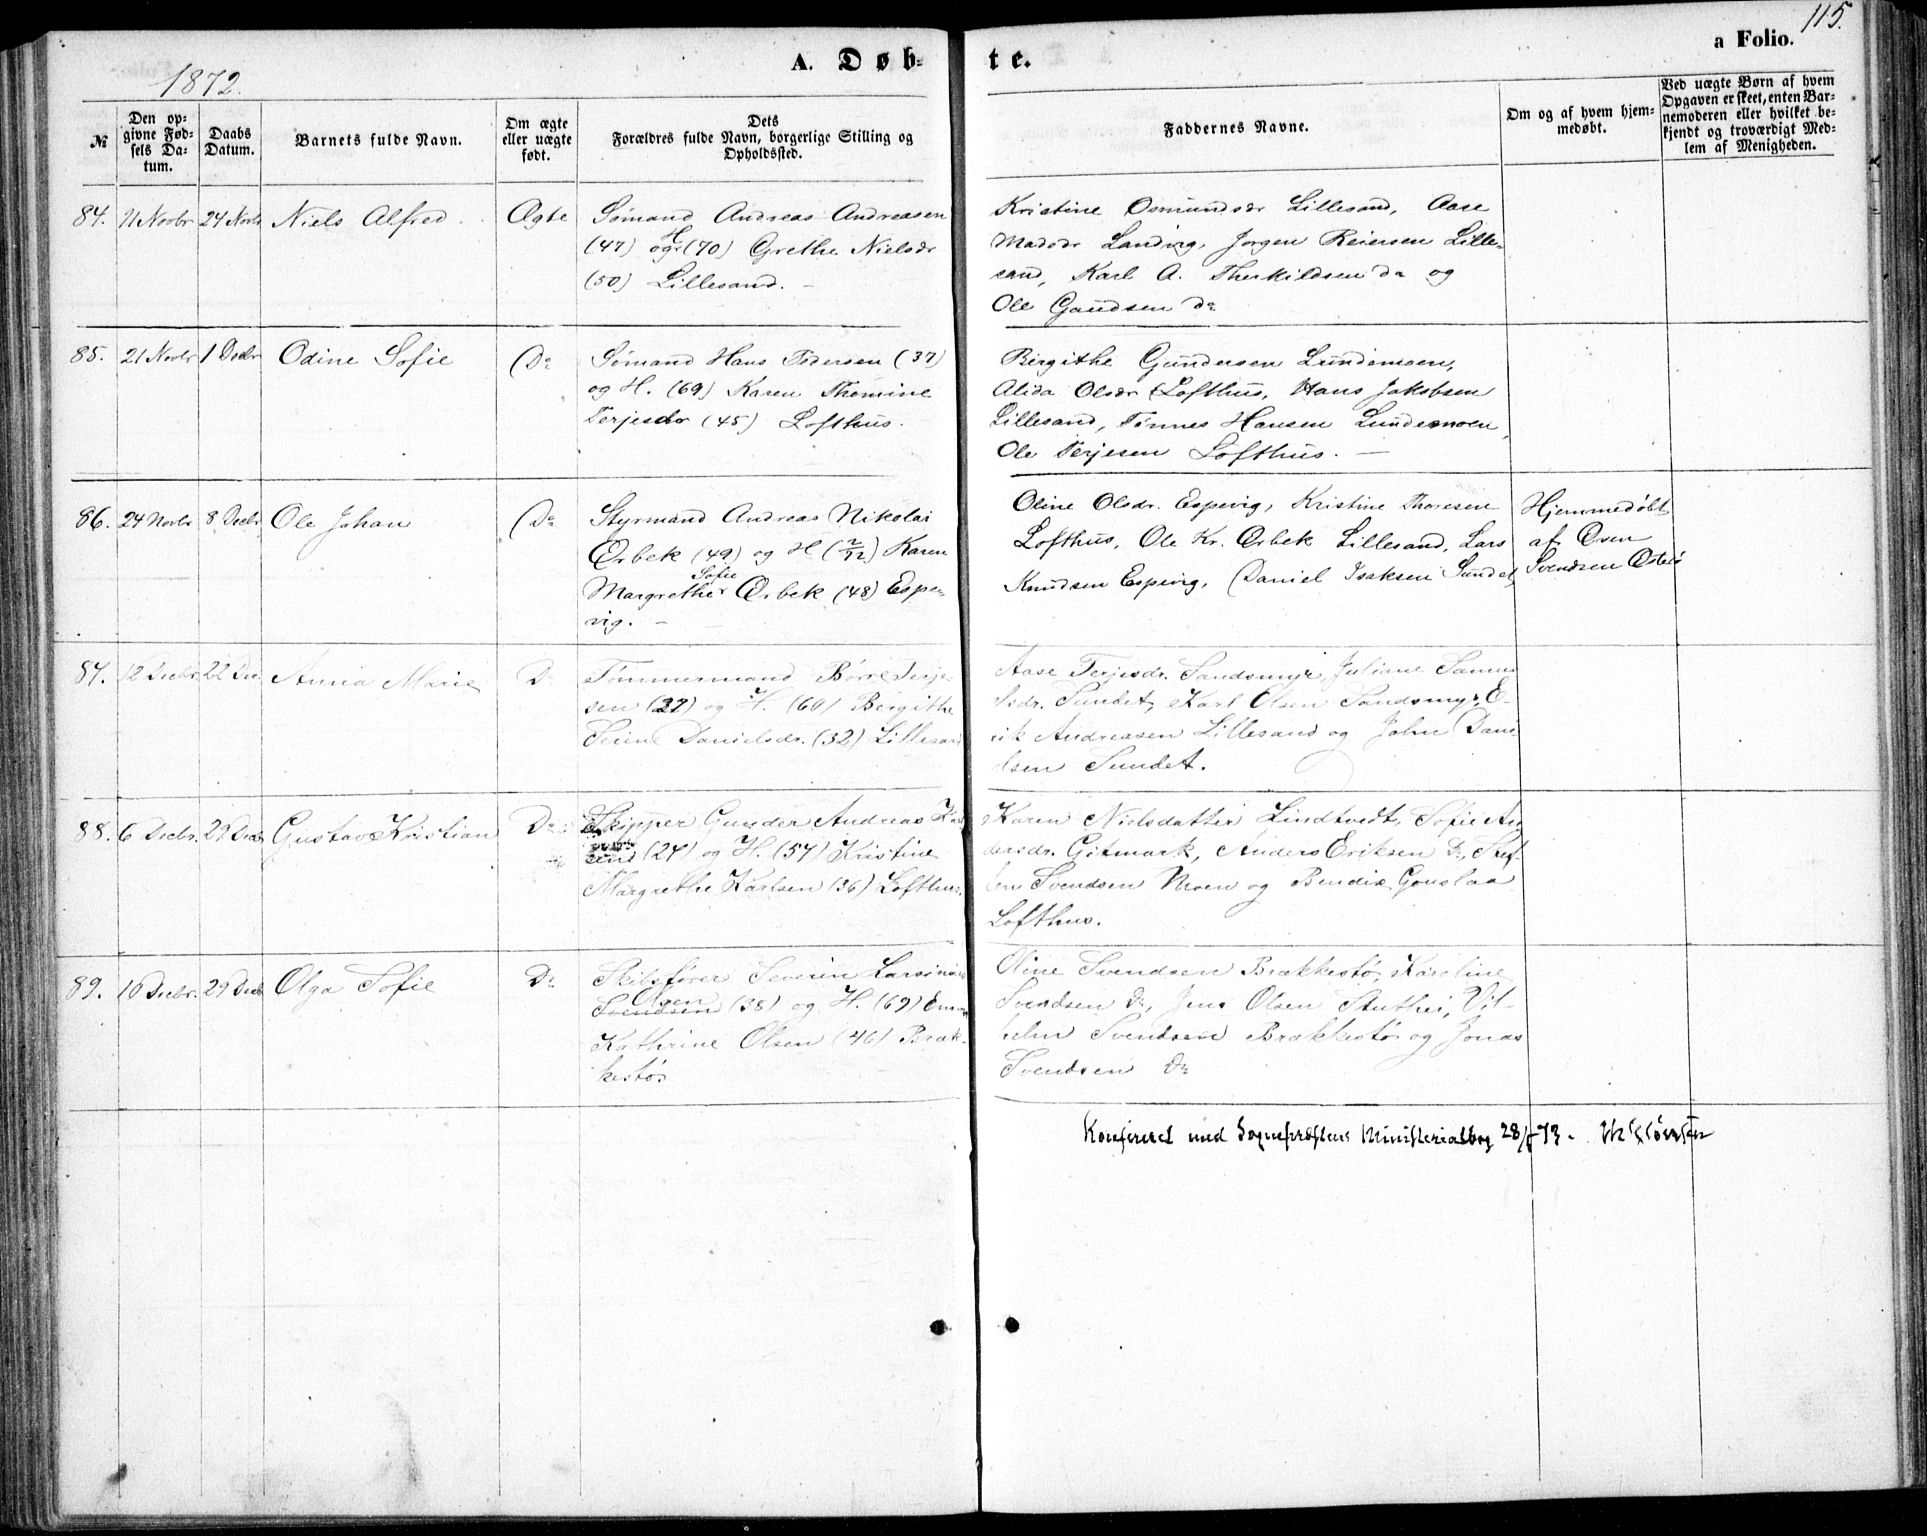 115.
a Folio.
A. Døb-
te.
1872.
№
Den op-
givne Fød-
sels Da-
tum.
Daabs
Datum.
Barnets fulde Navn.
Om ægte
eller uægte
født.
Dets
Forældres fulde Navn, borgerlige Stilling og
Opholdssted.
Faddernes Navne.
Om og af hvem hjem-
medøbt.
Ved uægte Børn af hvem
Opgaven er skeet, enten Bar-
nemoderen eller hvilket be-
kjendt og troværdigt Med-
lem af Menigheden.
84. 11 Novbr 24 Novbr Niels Alfred. Ægte
Sømand Andreas Andreasen
(47) og H (70) Grethe Nielsdr
(50) Lillesand.
Kristine Osmundsdr Lillesand, Aase
Madsdr Landvig, Jørgen Reiersen Lille-
sand, Karl A. Therkildsen Do og
Ole Gundsen Do
85. 21 Novbr 1 Decbr Odine Sofie Do
Sømand Hans Pedersen (37)
og H. (69) Karen Thomine
Terjesdr (45) Lofthus.
Birgithe Gundersen Lundemoen,
Alida Olsdr Lofthus, Hans Jakobsen
Lillesand, Tønnes Hansen Lundemoen,
Ole Terjesen Lofthus.
86. 24 Novbr 8 Decbr Ole Johan Do
Styrmand Andreas Nikolai
Ørbek (49) og H (2/72) Karen
Margrethe Sofie Ørbek (48) Espe-
vig.
Oline Olsdr. Espevig, Kristine Thoresen
Lofthus, Ole Kr. Ørbek Lillesand, Lars
Knudsen Espevig, Daniel Isaksen Sundet,
Hjemmedøbt
af Osen
Svendsen Osterø
87. 12 Decbr. 22 Dec. Anna Marie Do
Tømmermand Børre Terje-
sen (37) og H. (60) Bergithe
Serine Danielsdr. (32) Lillesand
Aase Terjesdr. Sandsmyr, Juliane Samu-
elsdr. Sundet, Karl Olsen Sandsmyr, E-
rik Andreasen Lillesand og John Dani-
elsen Sundet.
88. 6 Decbr. 29 Decb Gustav Kristian Do
Skipper Gunder Andreas
(24) og H. (54) Kristine
Margrethe Karlsen (36) Lofthus.
Karen Nielsdatter Lindtvedt, Sofie An-
dersdr. Gitmark, Anders Eriksen Do, Stef-
fen Svendsen Moen og Bendix Gonslaa
Lofthus.
89. 10 Decbr. 29 Decb Olga Sofie Do
Skibsfører Severin Larsinius
Svendsen Olsen (38) og H. (69) Emma
Kathrine Olsen (46) Bræk-
kestø.
Oline Svendsen Brækkestø, Karoline
Svendsen Do, Jens Olsen Stuthei, Vil-
helm Svendsen Brækkestø og Jonas
Svendsen Do
Konfereret med Sognepræstens Ministerialbog 28/ 73.